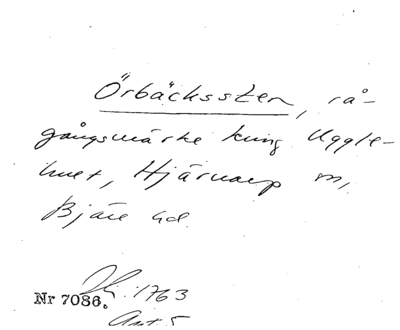 Örbäckssten, rå-
gångsmärke kring Uggle-
huset, Hjärnarp sn,
Bjäre hd.
1763
Nr 7086.
Art. 5